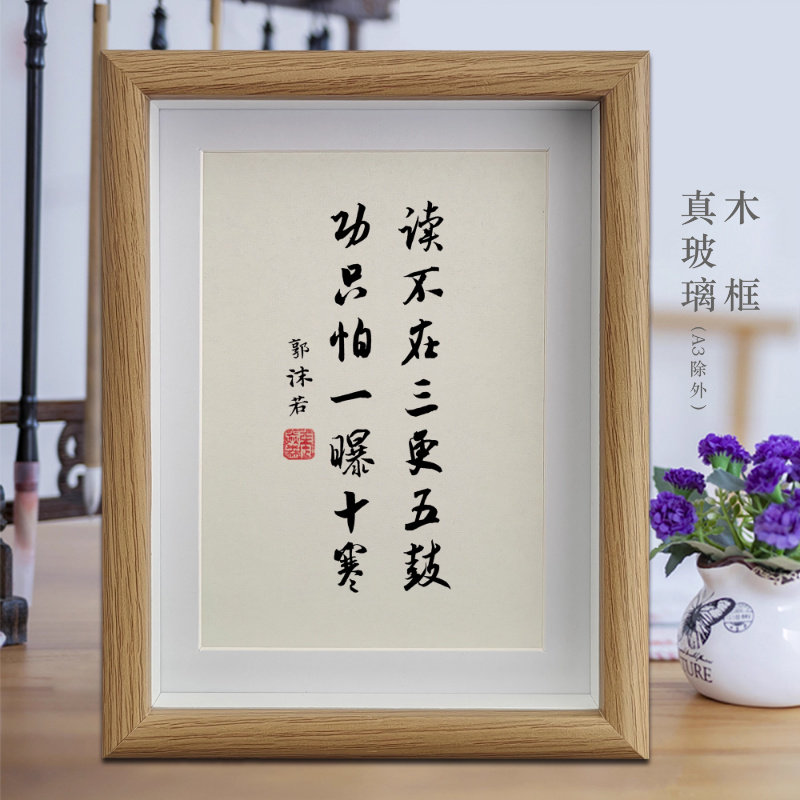 读不在三更五鼓
功只怕一曝十寒
郭沫若
木框
真玻璃(A3除外)